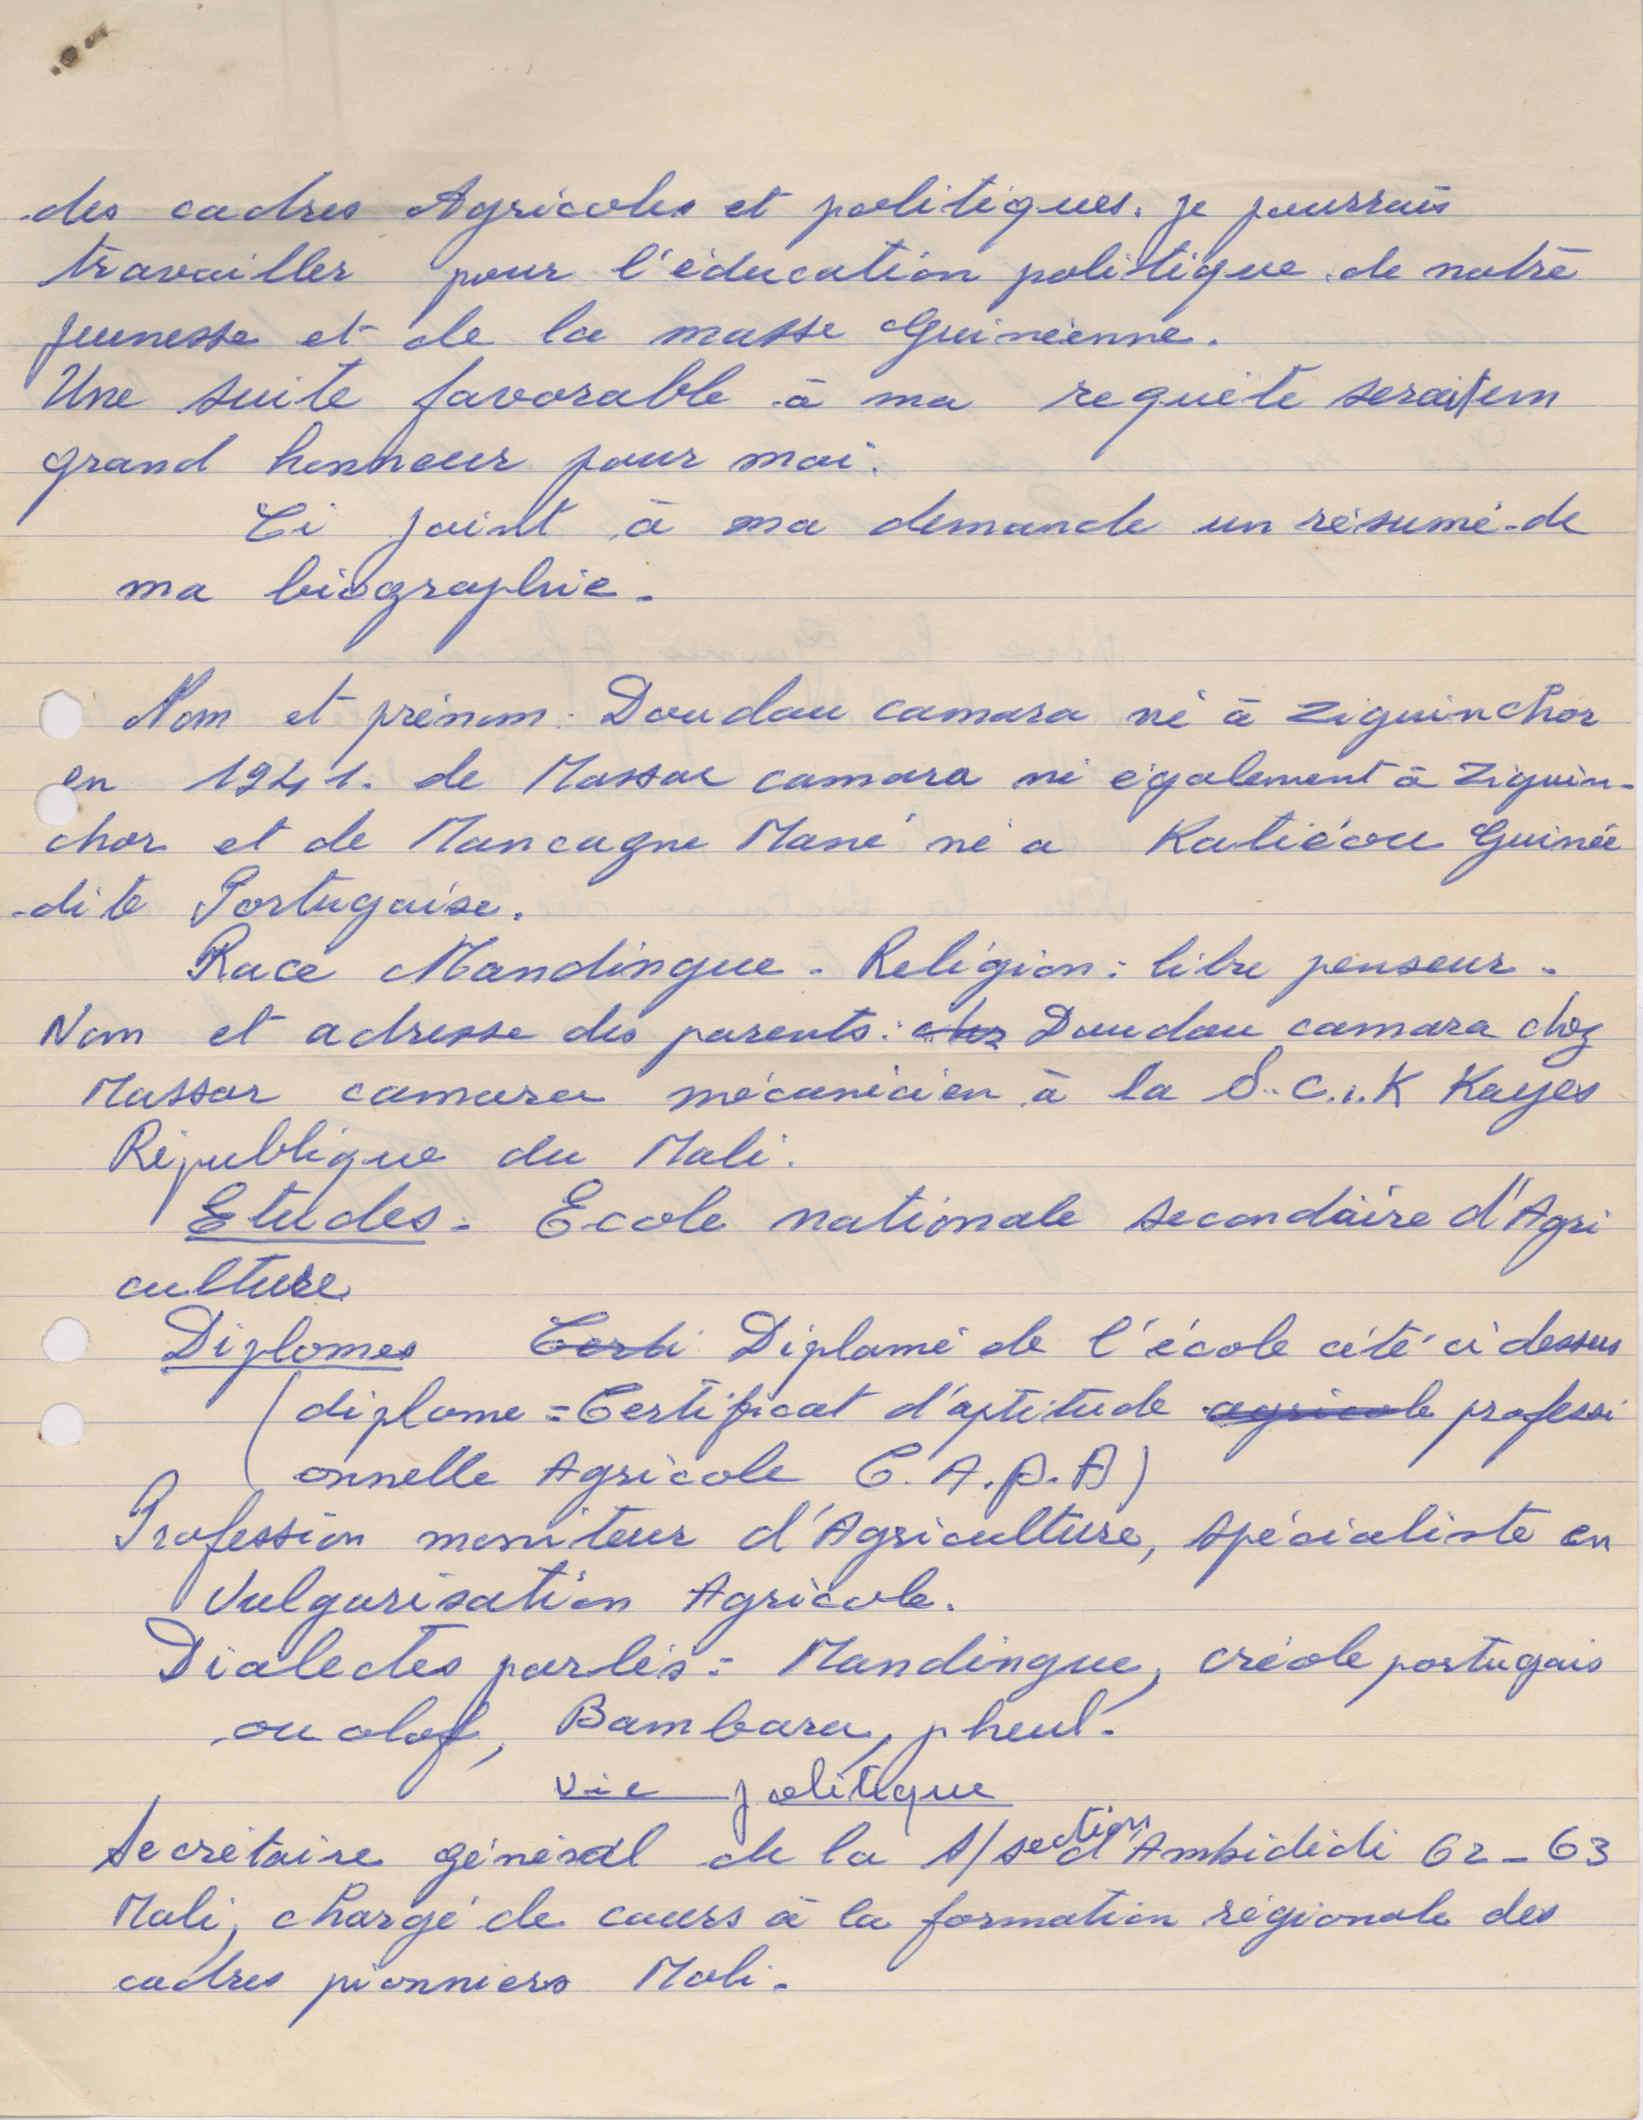 des cadres Agricoles et politiques. je pourrais
travailler pour l'éducation politique de notre
jeunesse et de la masse Guinéenne.
Une suite favorable à ma requête serait un
grand honneur pour moi.
Ci joint à ma demande un résumé de
ma biographie.
Nom et prénom : Doudou camara né à Ziguinchor
en 1941. de Massar camara né également à Ziguin-
chor et de Mancagne Mané né a Katiéou Guinée
dite Portugaise.
Race Mandingue - Religion : libre penseur -
Nom et adresse des parents : chz Doudou camara chez
Massar camara mécanicien à la S.C.i.K Kayes
République du Mali.
Etudes - Ecole nationale secondaire d'Agri
culture
Diplomes Certi Diplomé de l'école cité ci dessus
(diplome = Certificat d'aptitude agricole professi
onnelle Agricole C.A.P.A)
Profession moniteur d'Agriculture, spécialiste en
Vulgarisation Agricole.
Dialectes parlés = Mandingue, créole portugais
ou olof, Bambara, pheul.
vie politique
Secrétaire général de la s/section d'Ambidédi 62-63
Mali, chargé de cours à la formation régionale des
cadres pionniers Mali.